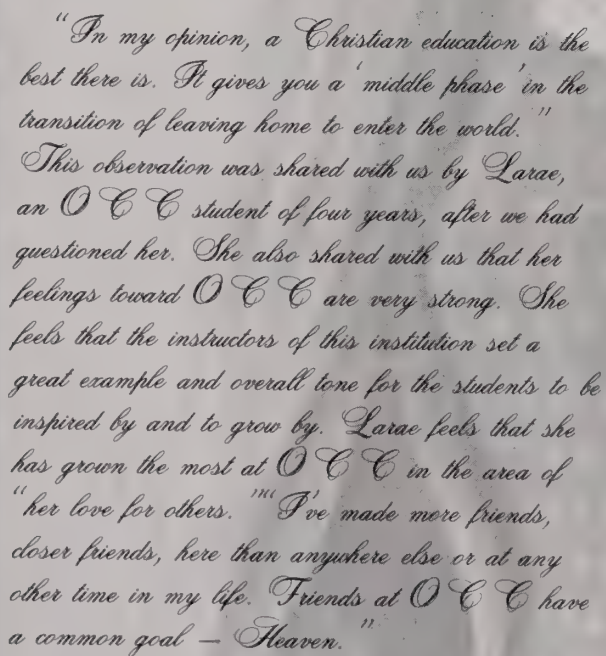 "In my opinion, a Christian education is the
best there is. It gives you a 'middle phase' in the
transition of leaving home to enter the world."
This observation was shared with us by Larae,
an O C C student of four years, after we had
questioned her. She also shared with us that her
feelings toward O C C are very strong. She
feels that the instructors of this institution set a
great example and overall tone for the students to be
inspired by and to grow by. Larae feels that she
has grown the most at O C C in the area of
"her love for others.""I've made more friends,
closer friends, here than anywhere else or at any
other time in my life. Friends at O C C have
a common goal — Heaven."